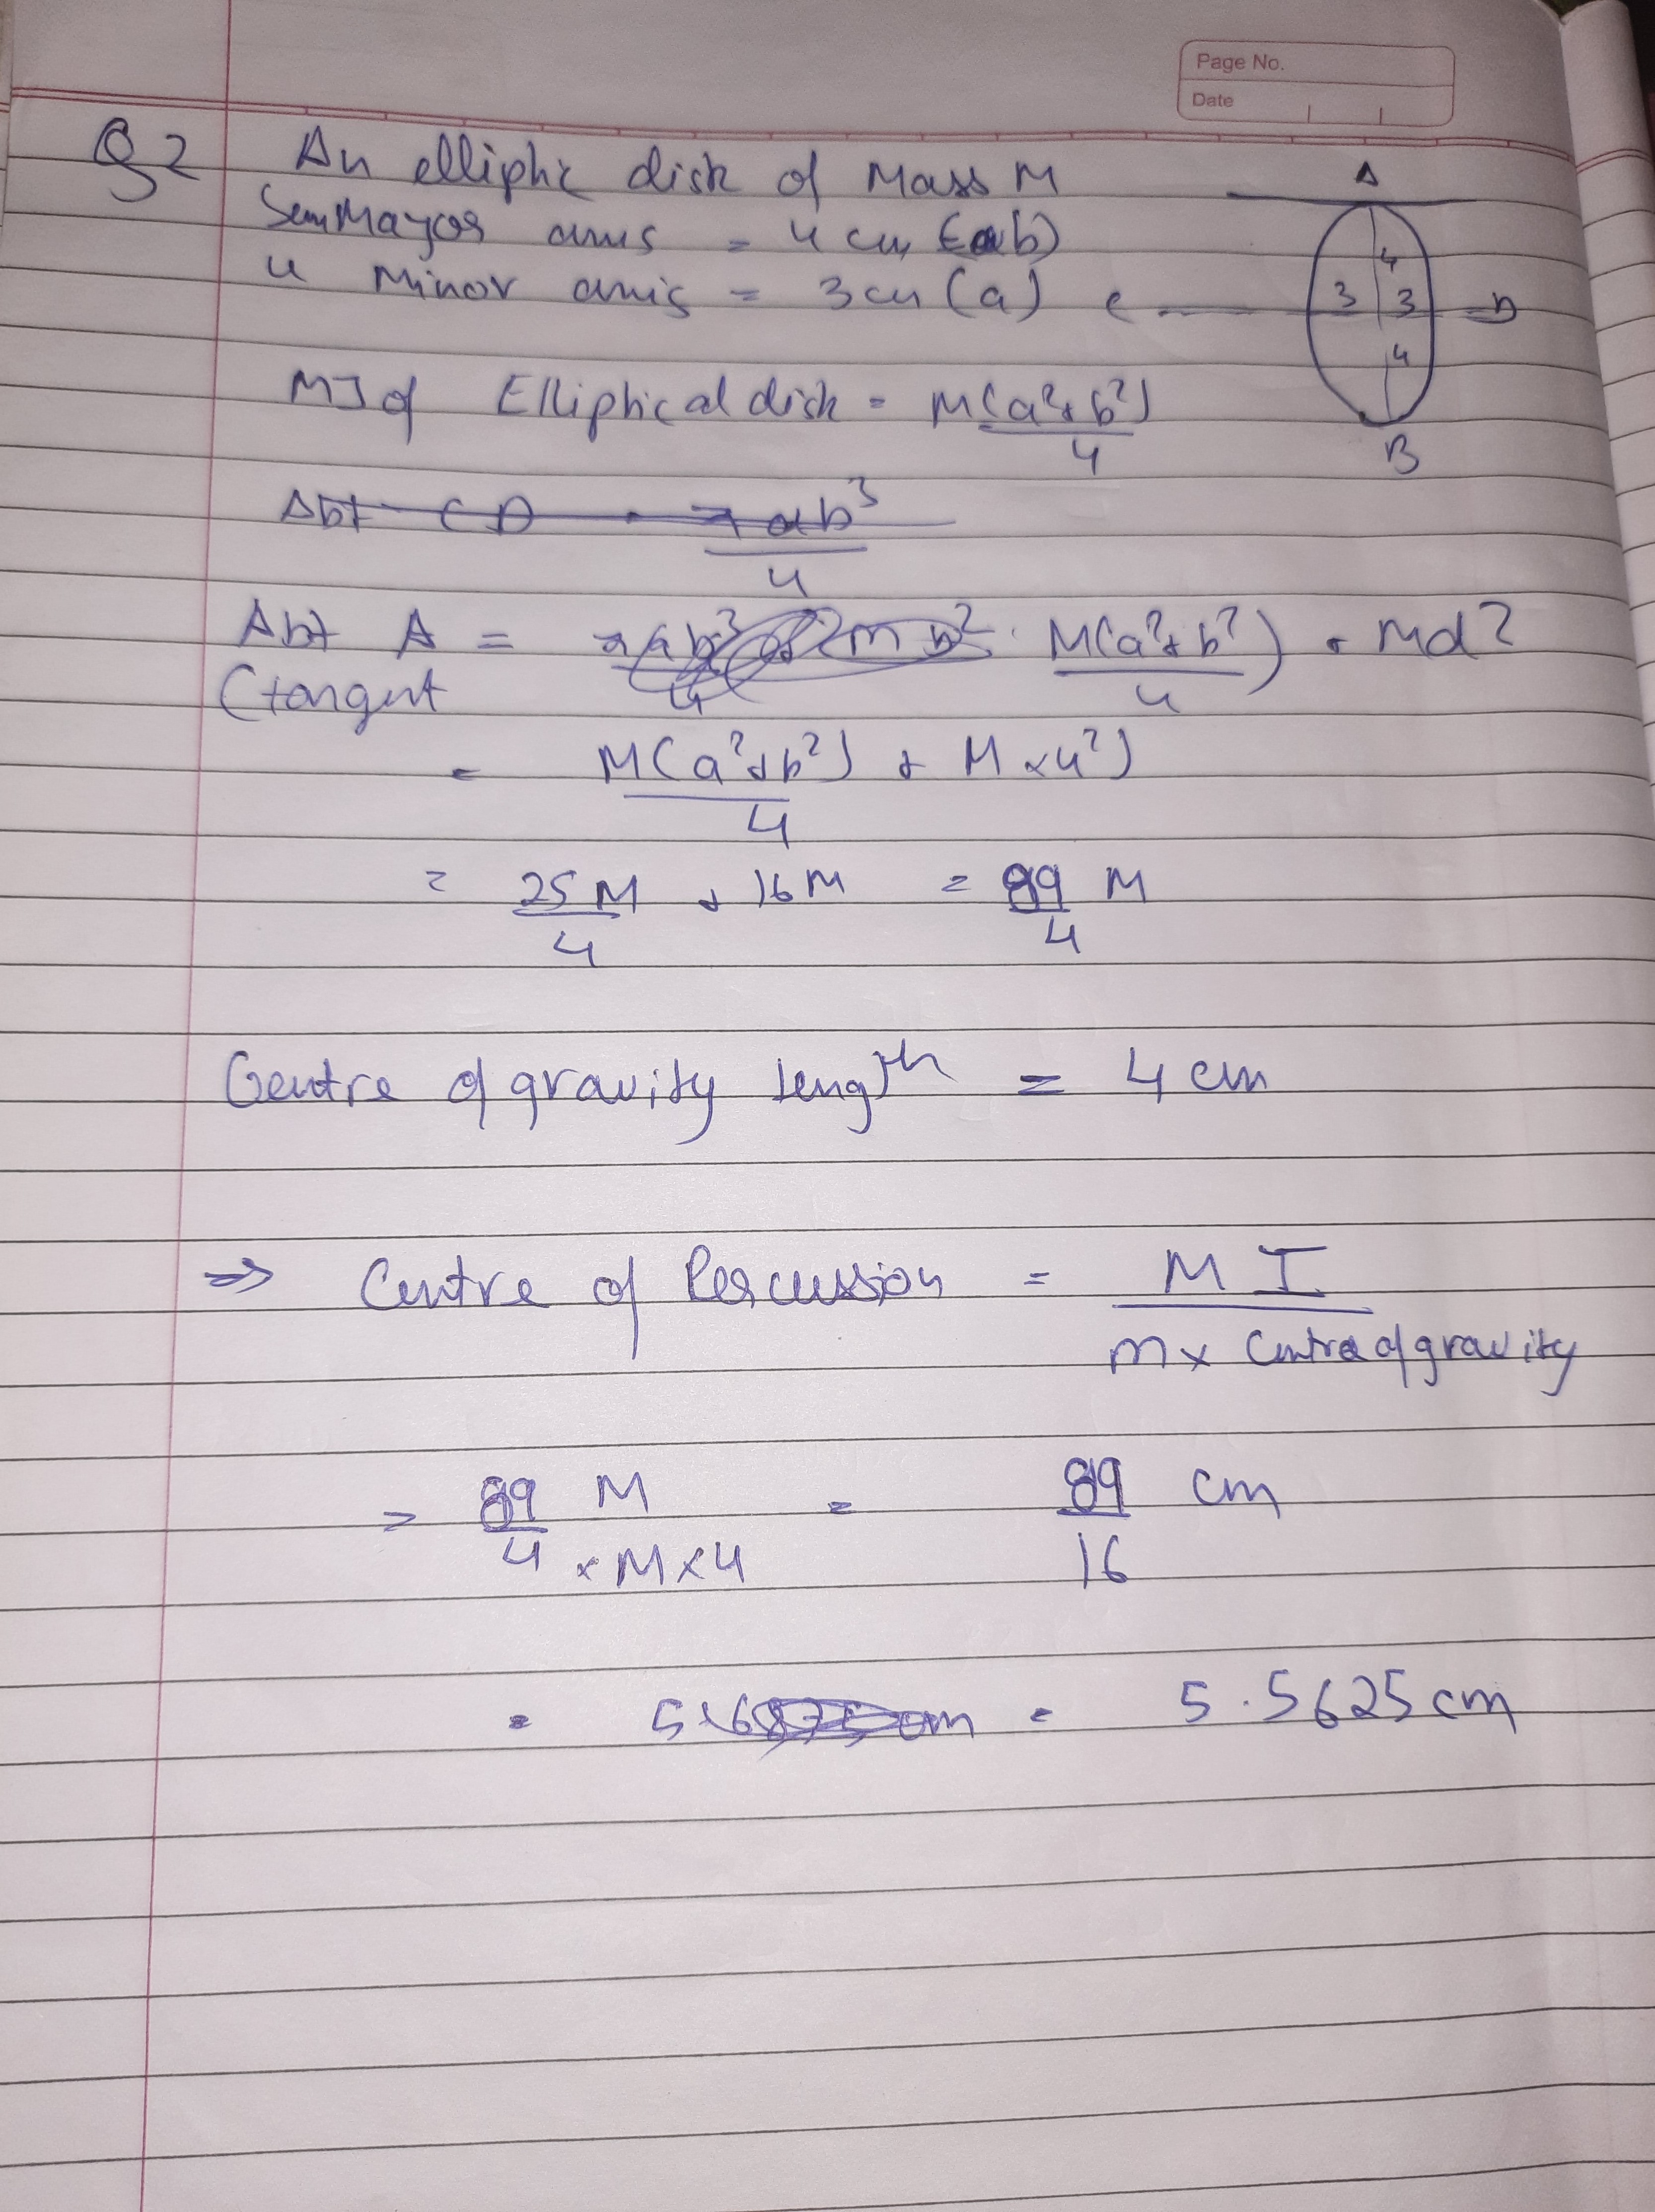 Page No.
Date
Q2 An elliptic disk of Mass M
A
Semi Mayor axis = 4 cm (b)
4
u Minor axis = 3 cm (a)
C 3 3 D
4
MI of Elliptical disk = M(a²+b²)/4
B
Abt CD = πab³/4
Abt A = M(a²+b²)/4 + Md²
(tangent
= M(a²+b²)/4 + M×4²)
= 25M/4 + 16M = 89/4 M
Centre of gravity length = 4 cm
⇒ Centre of Percussion = MI / m× Centre of gravity
= 89 M / 4 × M × 4 = 89/16 cm
= 5.5625 cm